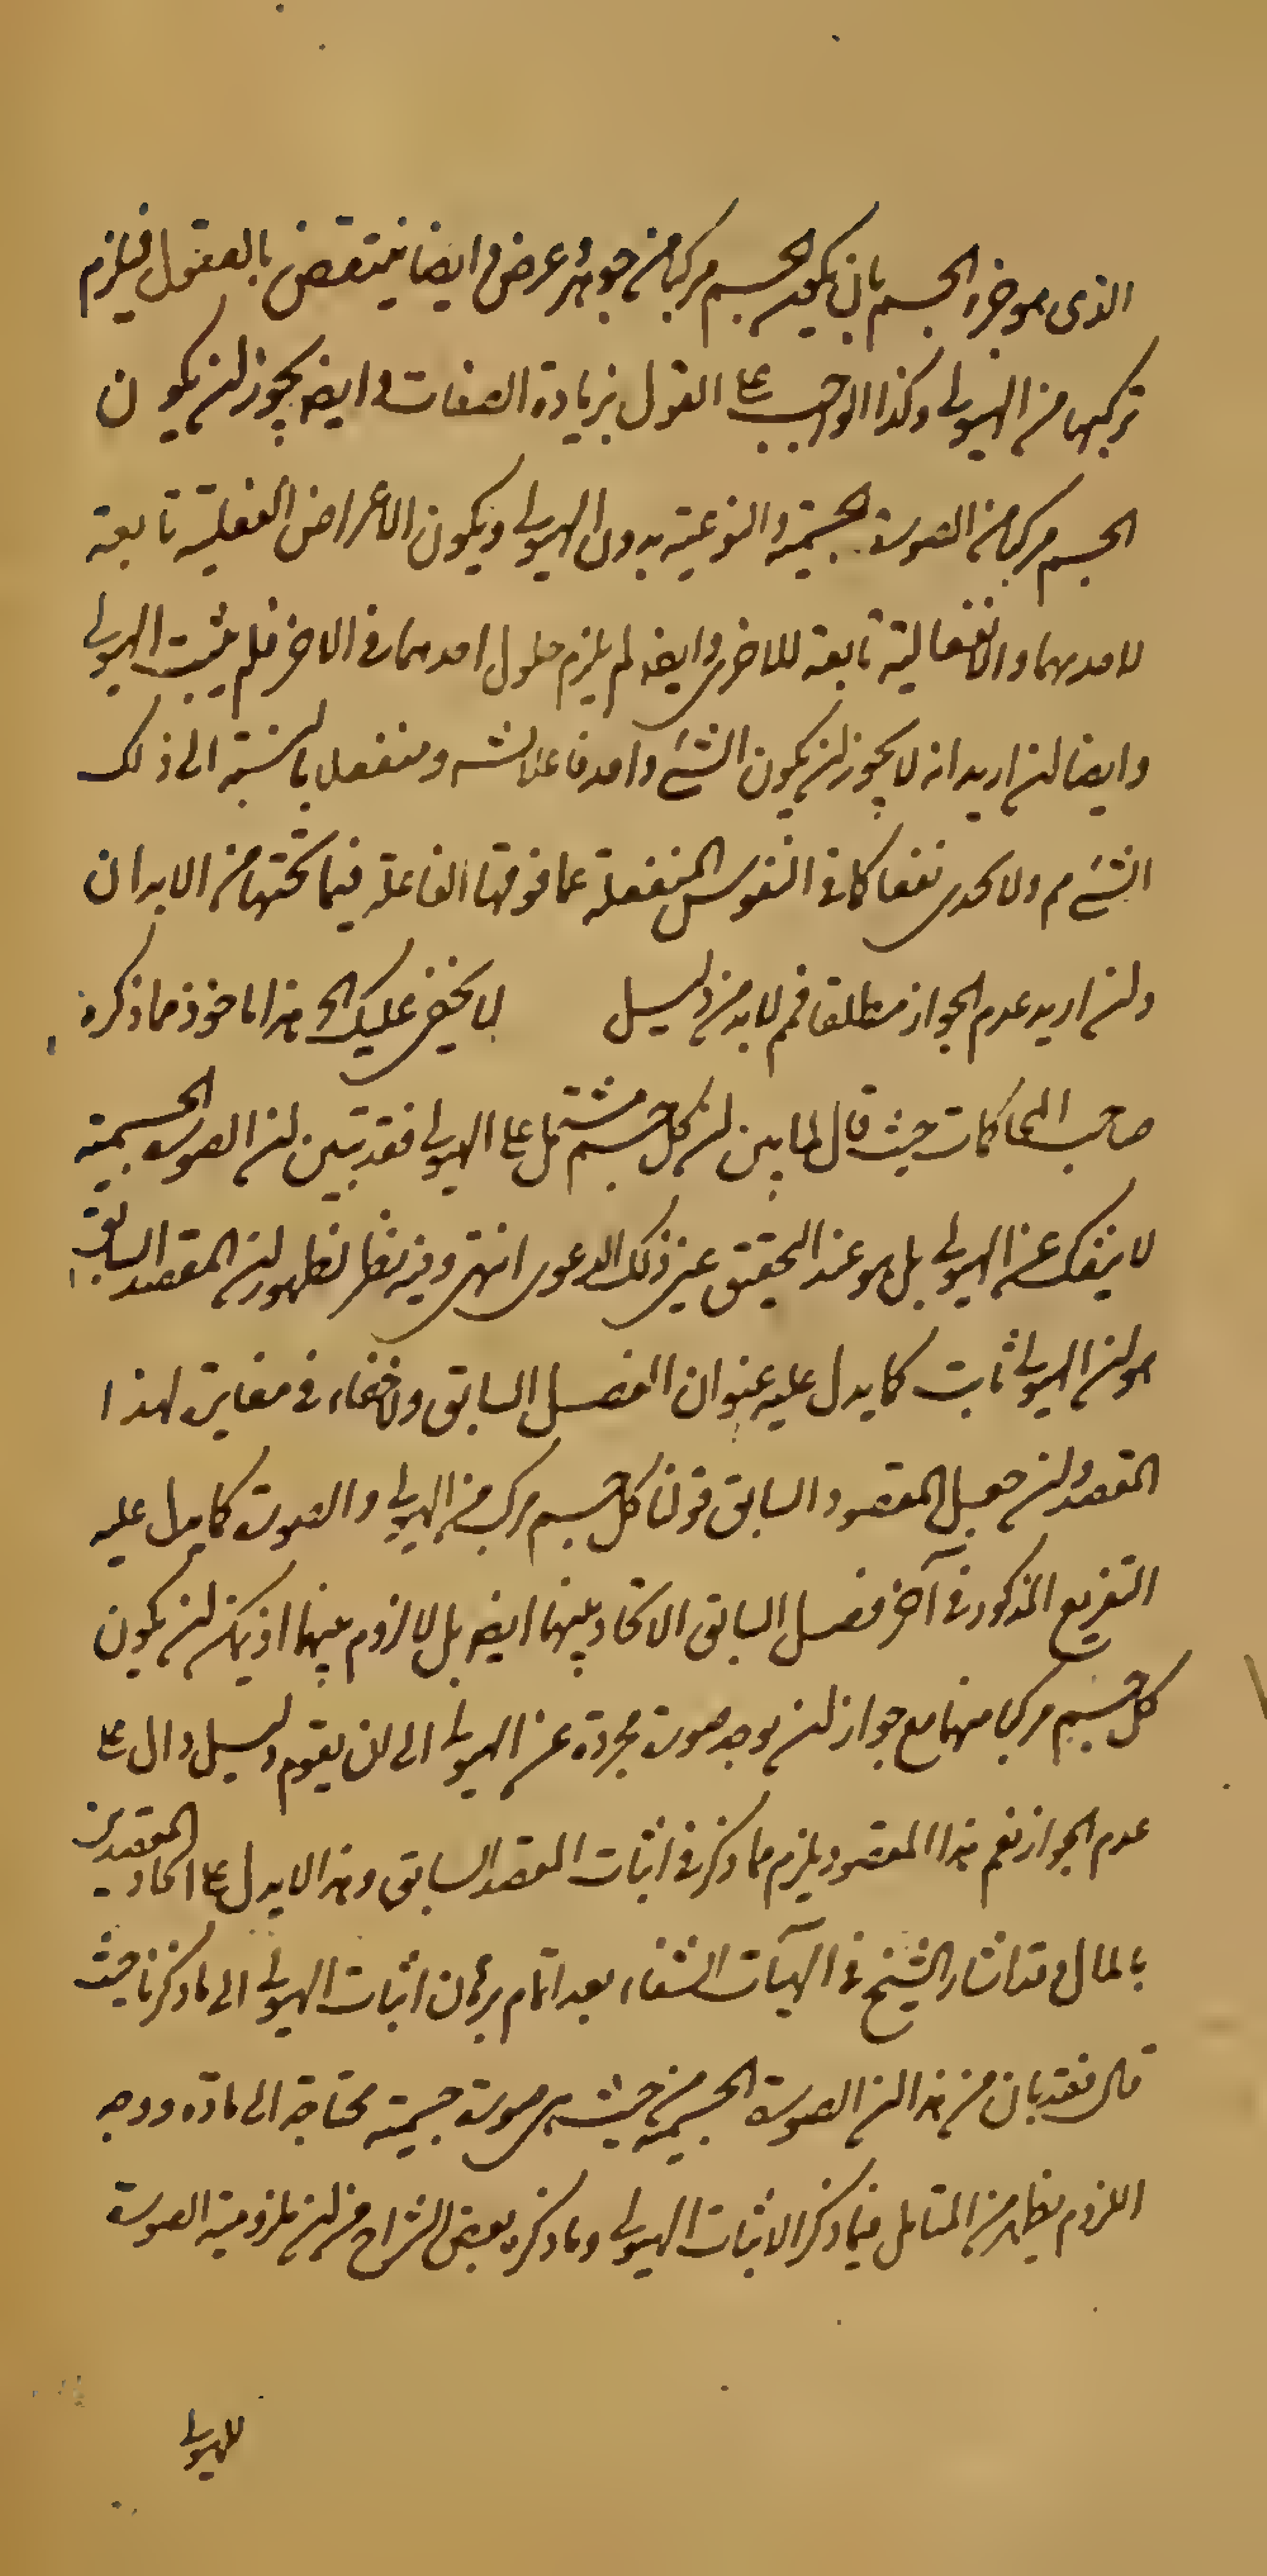 الذى هو جزء الجسم بان يكون الجسم مركبا من جوهر وعرض وايضا ينتقض بالعقول فيلزم
تركبها من الهيولى وكذا الواجب على القول بزيادة الصفات وايضه يجوز ان يكون
الجسم مركبا من الصورة الجسمية والنوعية بدون الهيولى ويكون الاعراض الفعلية تابعة
لاحديهما والانفعالية تابعة للاخرى وايضه لم يلزم حلول احدهما فى الاخر فلم يثبت الهيولى
وايضا ان اريد انه لا يجوز ان يكون الشئ واحد فاعلا لشئ ومنفعلا بالنسبة الى ذلك
الشئ م ولا يجدى نفعا كما فى النفوس المنفعلة عما فوقها الفاعلة فيما تحتها من الابدان
وان اريد عدم الجواز مطلقا فمم لا بد من دليل لا يخفى عليك الخ هذا ماخوذ مما ذكره
صاحب المحاكمات حيث قال لما بين ان كل جسم مشتمل على الهيولى فقد تبين ان الصورة الجسمية
لا ينفك عن الهيولى بل هو عند التحقيق عين ذلك الدعوى انتهى وفيه نظر لظهور ان المقصد السابق
هو ان الهيولى ثابت كما يدل عليه عنوان الفصل السابق ولا خفاء فى مغايرته لهذا
المقصد وان جعل المقصود السابق قولنا كل جسم مركب من الهيولى والصورة كما يدل عليه
التفريع المذكور فى آخر فصل السابق لا اتحاد بينهما ايضه بل لا لزوم بينهما اذ يمكن ان يكون
كل جسم مركبا منهما مع جواز ان يوجد صورة مجردة عن الهيولى الى ان يقوم دليل دال على
عدم الجواز نعم هذا المقصود يلزم مما ذكر فى اثبات المقصد السابق وهذا لا يدل على اتحاد المقصدين
بالمال وقد اشار الشيخ فى الهيات الشفاء بعد اتمام برهان اثبات الهيولى الى ما ذكرنا حيث
قال فقد بان من هذا ان الصورة الجسمية من حيث هى صورة جسمية محتاجة الى مادة ووجه
اللزوم يظهر من التامل فيما ذكر لاثبات الهيولى وما ذكره بعض الشراح من ان ملزومية الصورة
للهيولى